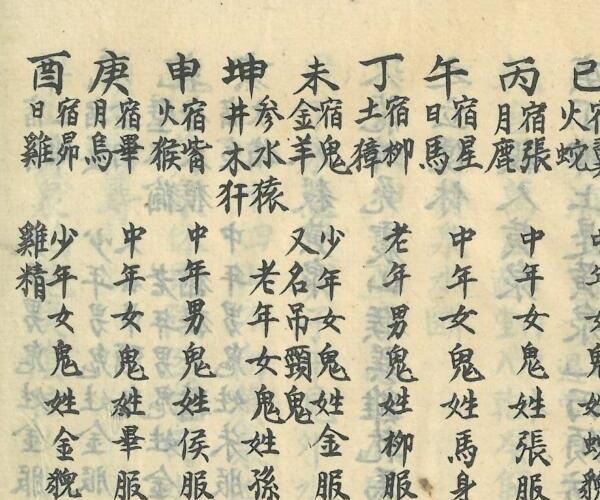 巳 宿翼火蛇 女鬼姓蛇貌
丙 宿張月鹿 中年女鬼姓張服
午 宿星日馬 中年女鬼姓馬身
丁 宿柳土獐 老年男鬼姓柳服
未 宿鬼金羊 少年女鬼姓金服又名吊頸鬼
坤 参水猿井木犴 老年女鬼姓孫
申 宿觜火猴 中年男鬼姓侯服
庚 宿畢月烏 中年女鬼姓畢服
酉 宿昴日雞 少年女鬼姓金貌雞精